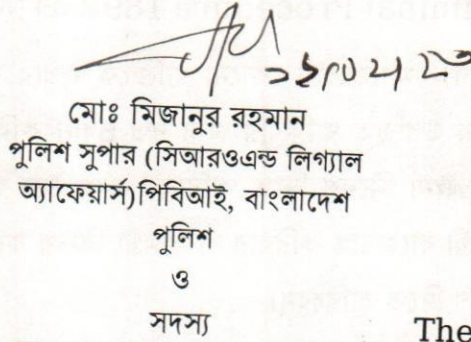 মোঃ মিজানুর রহমান
পুলিশ সুপার (সিআরওএন্ড লিগ্যাল
অ্যাফেয়ার্স)পিবিআই, বাংলাদেশ
পুলিশ
ও
সদস্য
The